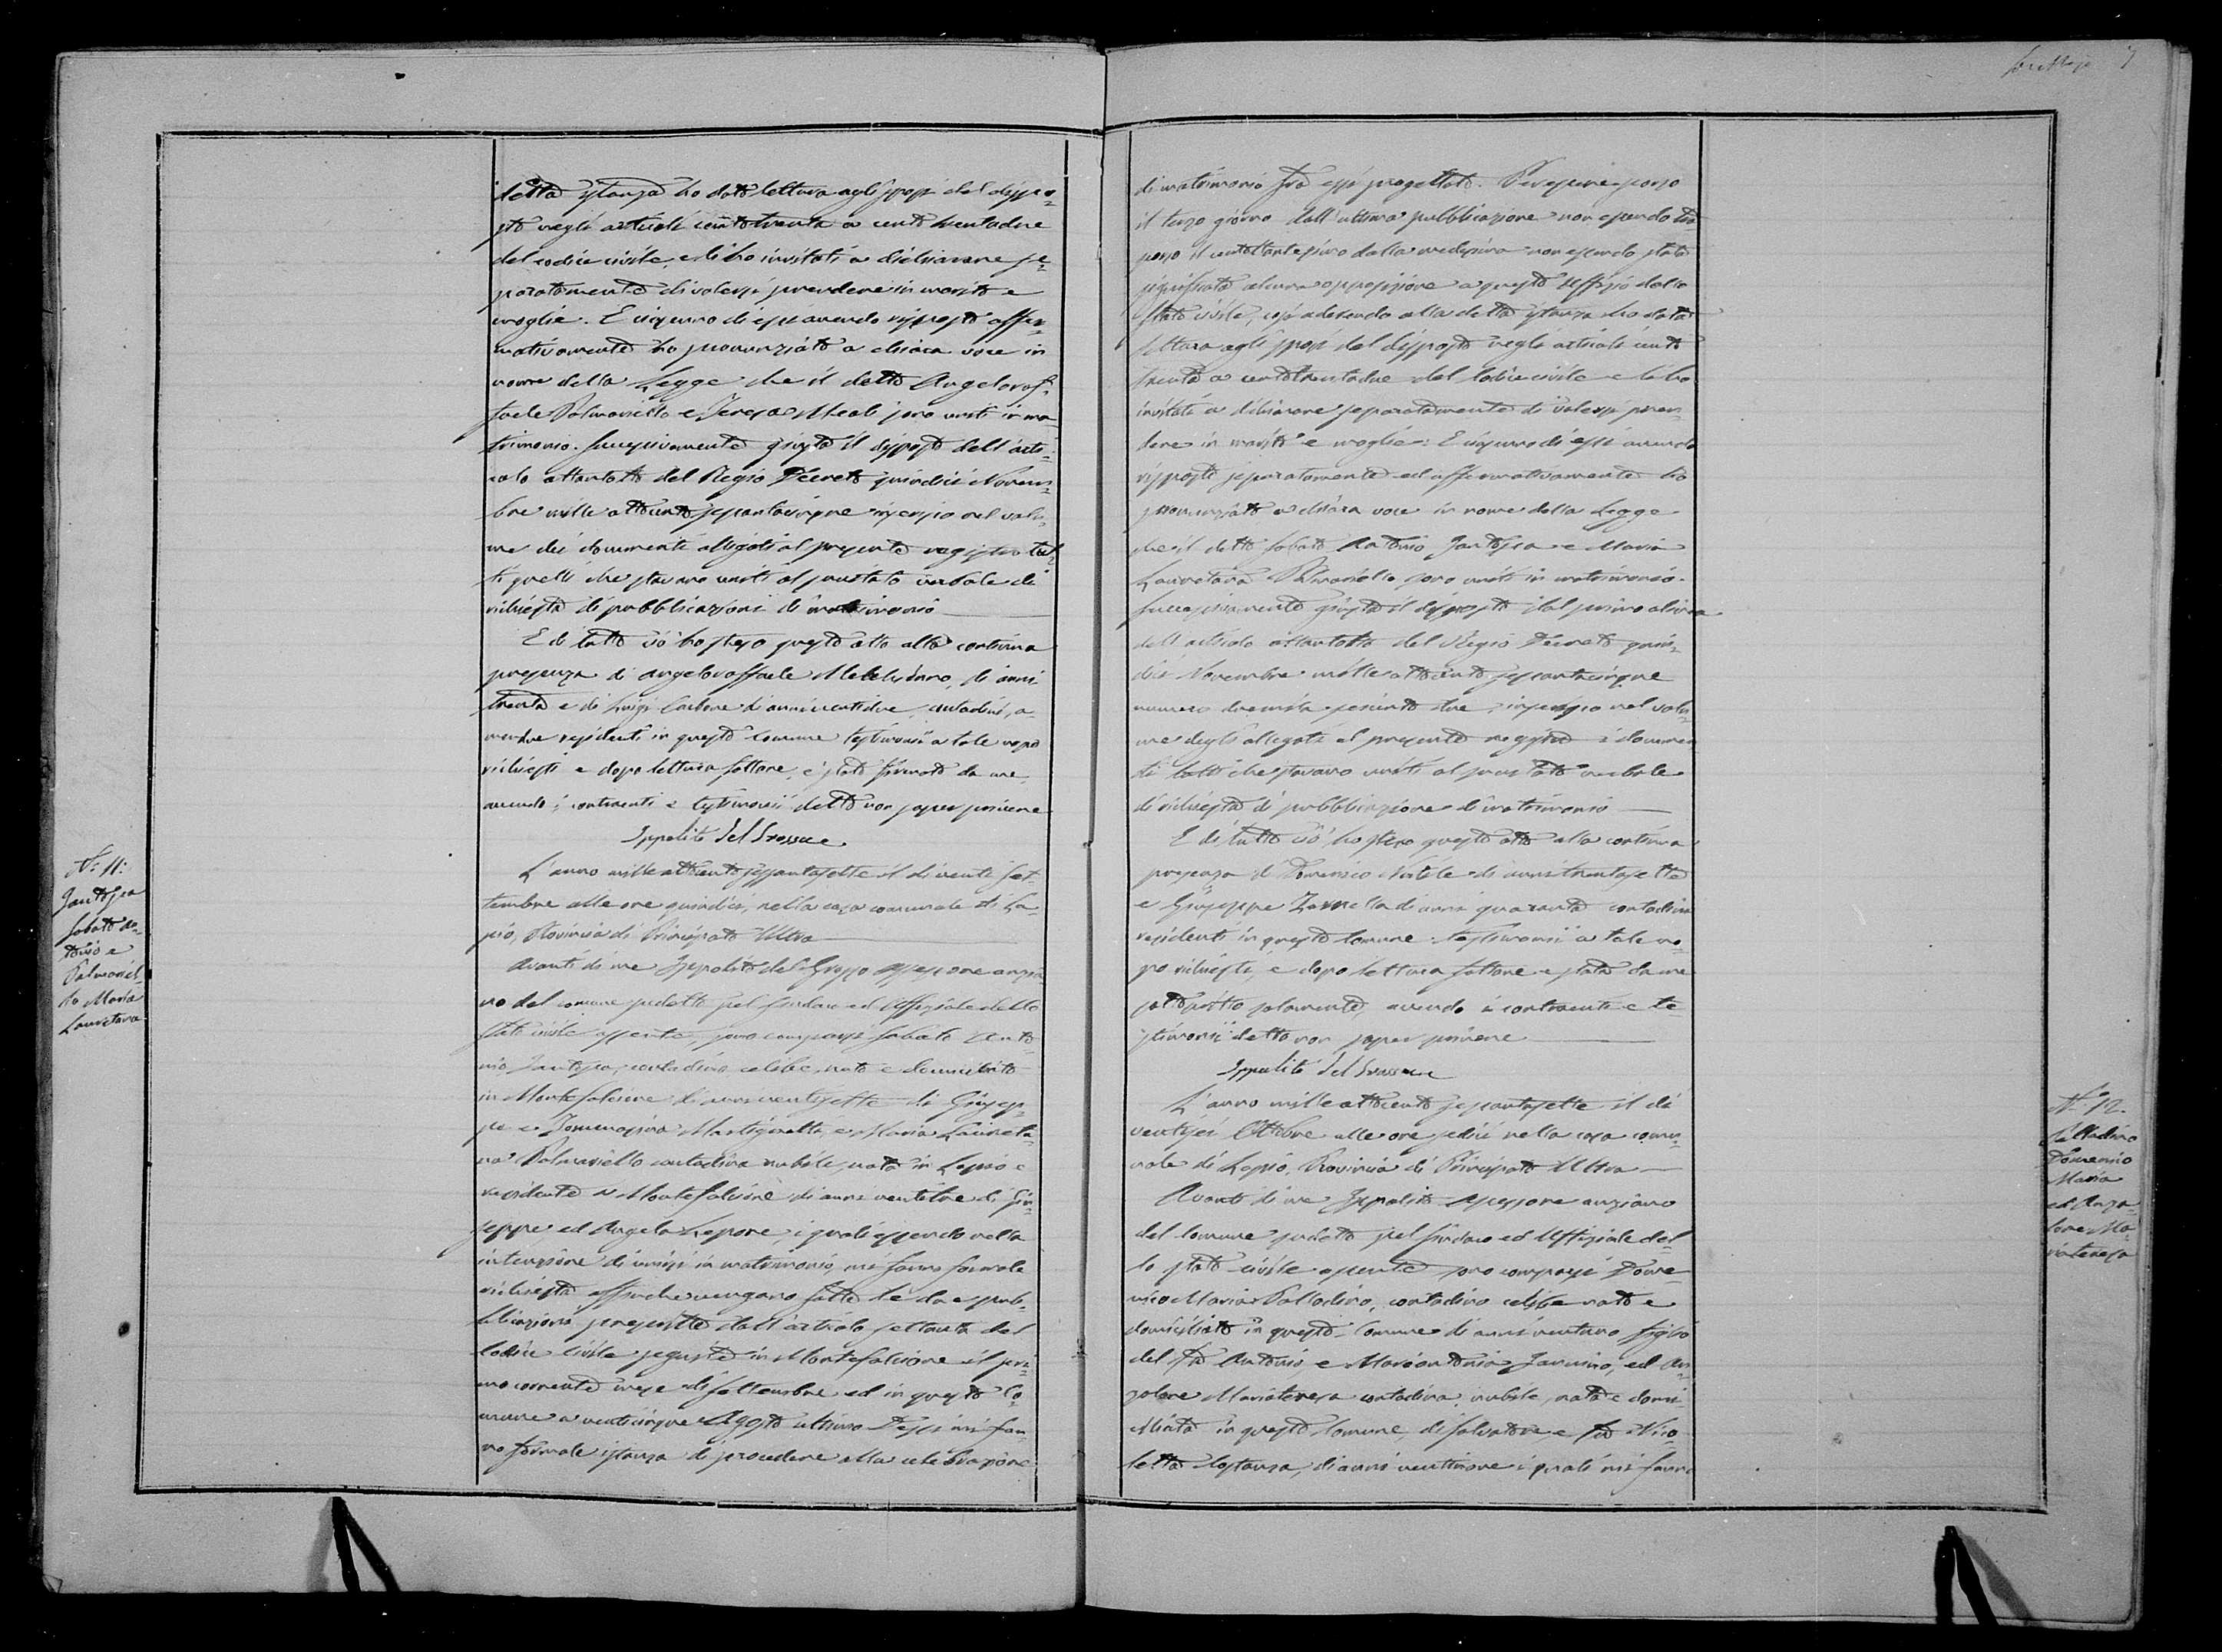 detta istanza ho dato lettura agli sposi del dispo=
sto negli articoli centotrenta a cento trentadue
del codice civile, e li ho invitati a dichiarare se=
paratamente di volersi prendere in marito e
moglie. E ciascuno di essi avendo risposto affer=
mativamente ho pronunziato a chiara voce in
nome della Legge che il detto Angeloraf=
faele Palmariello e Teresa Meoli sono uniti in ma=
trimonio. Successivamente giusta il disposto dell'arti=
colo ottantotto del Regio Decreto quindici Novem=
bre mille ottocento sessantacinque inserisco nel volu=
me dei documenti allegati al presente registro tut=
ti quelli che stavano uniti al precitato verbale di
richiesta di pubblicazioni di matrimonio
E di tutto ciò ho steso questo atto alla continua
presenza di Angeloraffaele di anni
trenta e di Luigi Carbone di anni ventidue, contadini, a=
mendue residenti in questo comune testimonii a tale uopo
richiesti e dopo lettura fattane, è stato firmato da me
avendo i contraenti e testimonii detto non saper scrivere
Ippolito del Grosso
N.º 11:
Santosa
Sabato An=
tonio e
Palmariel=
lo Maria
Lauretana
L'anno mille ottocento sessantasette il di venti Set=
tembre alle ore quindici, nella casa comunale di La=
pio, Provincia di Principato Ultra
Avanti di me Ippolito del Grosso Assessore anzia=
no del comune sudetto pel Sindaco ed Uffiziale dello
Stato civile assente, sono comparsi Sabato Anto=
nio contadino celibe, nato e domiciliato
in Montefalcione di anni ventisette di Giusep=
pe e Tommasina e Maria Laureta=
na Palmariello contadina nubile, nata in Lapio e
residente a Montefalcione di anni ventitre di Giu=
seppe ed Angela Lepore, i quali essendo nella
intenzione di unirsi in matrimonio, mi fanno formale
richiesta affinche vengano fatte le due pub=
blicazioni prescritte dall'articolo settanta del
Codice Civile seguite in Montefalcione il pri=
mo corrente mese di Settembre ed in questo Co=
mune a venticinque Agosto ultimo. Dessi mi fan=
no formale istanza di procedere alla celebrazione
7
di matrimonio fra essi progettato. Per essere scorso
il terzo giorno dall'ultima pubblicazione non essendo tra
scorso il centottantesimo dalla medesima non essendo stata
significata alcuna opposizione a questo Uffizio dello
Stato civile, così aderendo alla detta istanza ho dato
lettura agli sposi del disposto negli articoli cento
trenta a centotrentadue del Codice civile e li ho
invitati a dichiarare separatamente di volersi pren=
dere in marito e moglie: E ciascuno di essi avendo
risposto separatamente ed affermativamente ho
pronunziato a chiara voce in nome della Legge
che il detto Sabato Antonio e Maria
Lauretana Palmariello sono uniti in matrimonio.
Successivamente giusta il disposto del primo alinea
dell'articolo ottantotto del Regio Decreto quin=
dici Novembre mille ottocento sessantacinque
numero duemila seicento due, inserisco nel volu=
me degli allegati al presente registro i documen
ti tutti che stavano uniti al precitato verbale
di richiesta di pubblicazione di matrimonio
E di tutto ciò ho steso questo atto alla continua
presenza di Domenico di anni trentasette
e Giuseppe di anni quaranta contadini
residenti in questo Comune testimonii a tale uo=
po richiesti, e dopo lettura fattane è stato da me
sottoscritto solamente, avendo i contraenti e te=
stimonii detto non saper scrivere
Ippolito del Grosso
N.º 12.
Palladino
Domenico
Maria
ed Anza=
lone Ma=
riateresa
L'anno mille ottocento sessantasette il di
ventisei Ottobre alle ore sedici nella casa comu=
nale di Lapio, Provincia di Principato Ultra
Avanti di me Ippolito Assessore anziano
del Comune sudetto pel Sindaco ed Uffiziale del=
lo stato civile assente sono comparsi Dome=
nico Maria Palladino, contadino celibe nato e
domiciliato in questo Comune di anni ventuno figlio
del fu Antonio e Mariantonia ed An=
zalone Mariateresa contadina, nubile, nata e domi
ciliata in questo Comune, di Salvatore e fu Nico=
letta Costanza, di anni ventinove i quali mi fanno